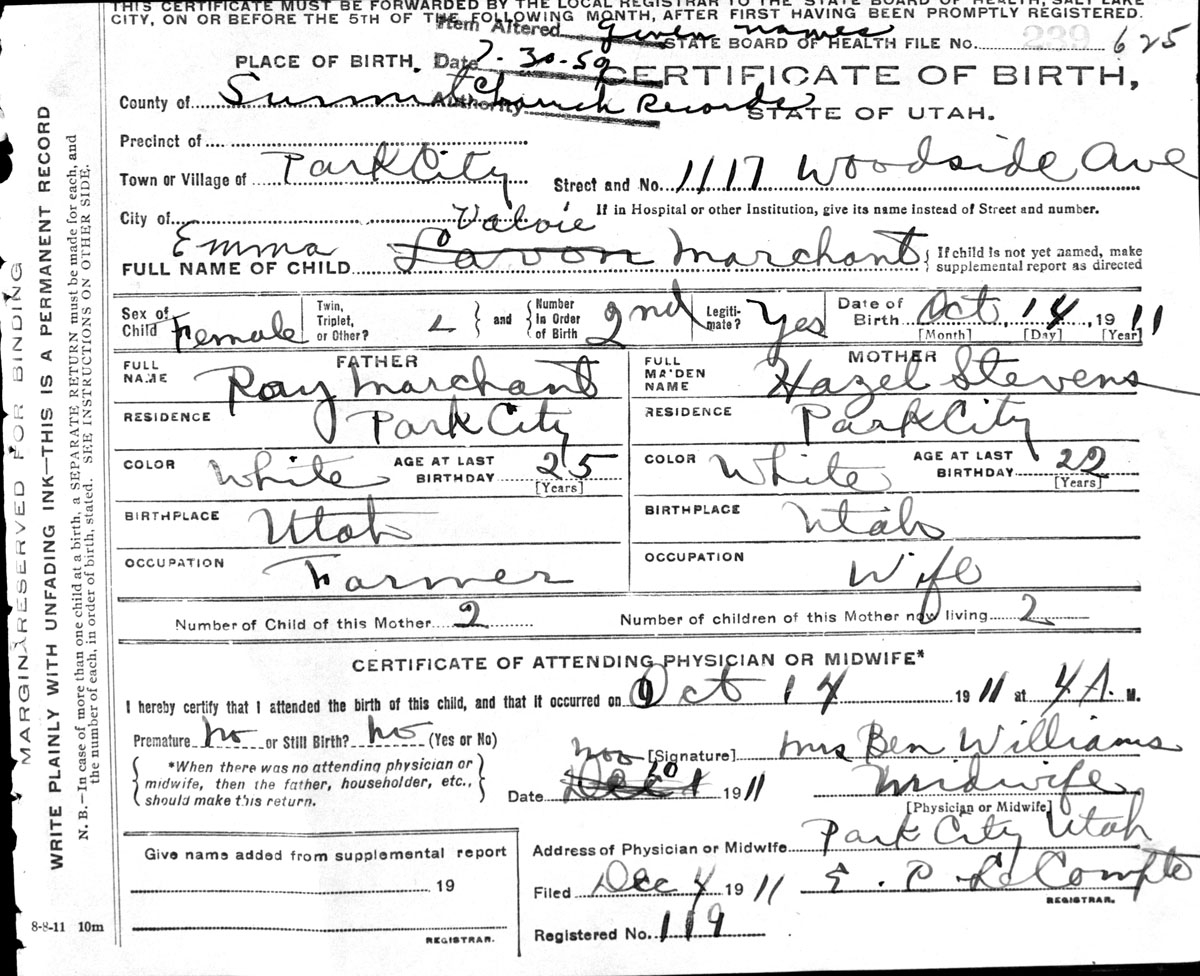 THIS CERTIFICATE MUST BE FORWARDED BY THE LOCAL REGISTRAR TO THE STATE BOARD OF HEALTH, SALT LAKE
CITY, ON OR BEFORE THE 5TH OF THE FOLLOWING MONTH, AFTER FIRST HAVING BEEN PROMPTLY REGISTERED.
Item Altered Given names
STATE BOARD OF HEALTH FILE No. 239 625
PLACE OF BIRTH. Date 7-30-59 CERTIFICATE OF BIRTH,
County of Summit Authority Church Records STATE OF UTAH.
Precinct of
Town or Village of Park City Street and No. 1117 Woodside Ave
City of If in Hospital or other Institution, give its name instead of Street and number.
Emma Valoie
FULL NAME OF CHILD Lavon Marchant { If child is not yet named, make supplemental report as directed
Sex of Child Female Twin, Triplet, or Other? } and { Number In Order of Birth 2nd Legiti-mate? Yes Date of Birth Oct, 14, 1911
[Month] [Day] [Year]
FATHER MOTHER
FULL NAME Ray Marchant FULL MAIDEN NAME Hazel Stevens
RESIDENCE Park City RESIDENCE Park City
COLOR White AGE AT LAST BIRTHDAY 25 [Years] COLOR White AGE AT LAST BIRTHDAY 22 [Years]
BIRTHPLACE Utah BIRTHPLACE Utah
OCCUPATION Farmer OCCUPATION Wife
Number of Child of this Mother 2 Number of children of this Mother now living 2
CERTIFICATE OF ATTENDING PHYSICIAN OR MIDWIFE*
I hereby certify that I attended the birth of this child, and that it occurred on Oct 14 1911 at 4 A. M.
Premature No or Still Birth? No (Yes or No)
[Signature] Mrs Ben Williams
{ *When there was no attending physician or midwife, then the father, householder, etc., should make this return. }
Date Nov 30 1911 Midwife
[Physician or Midwife]
Give name added from supplemental report
19
REGISTRAR.
Address of Physician or Midwife Park City Utah
Filed Dec 4 1911 E. P. LeCompte
REGISTRAR.
Registered No. 119
8-8-11 10m
MARGIN RESERVED FOR BINDING
WRITE PLAINLY WITH UNFADING INK—THIS IS A PERMANENT RECORD
N. B.—In case of more than one child at a birth, a SEPARATE RETURN must be made for each, and
the number of each, in order of birth, stated. SEE INSTRUCTIONS ON OTHER SIDE.